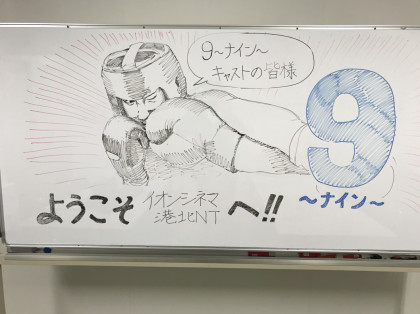 9~ナイン~
キャストの皆様
9
~ナイン~
ようこそ イオンシネマ
港北NT へ!!